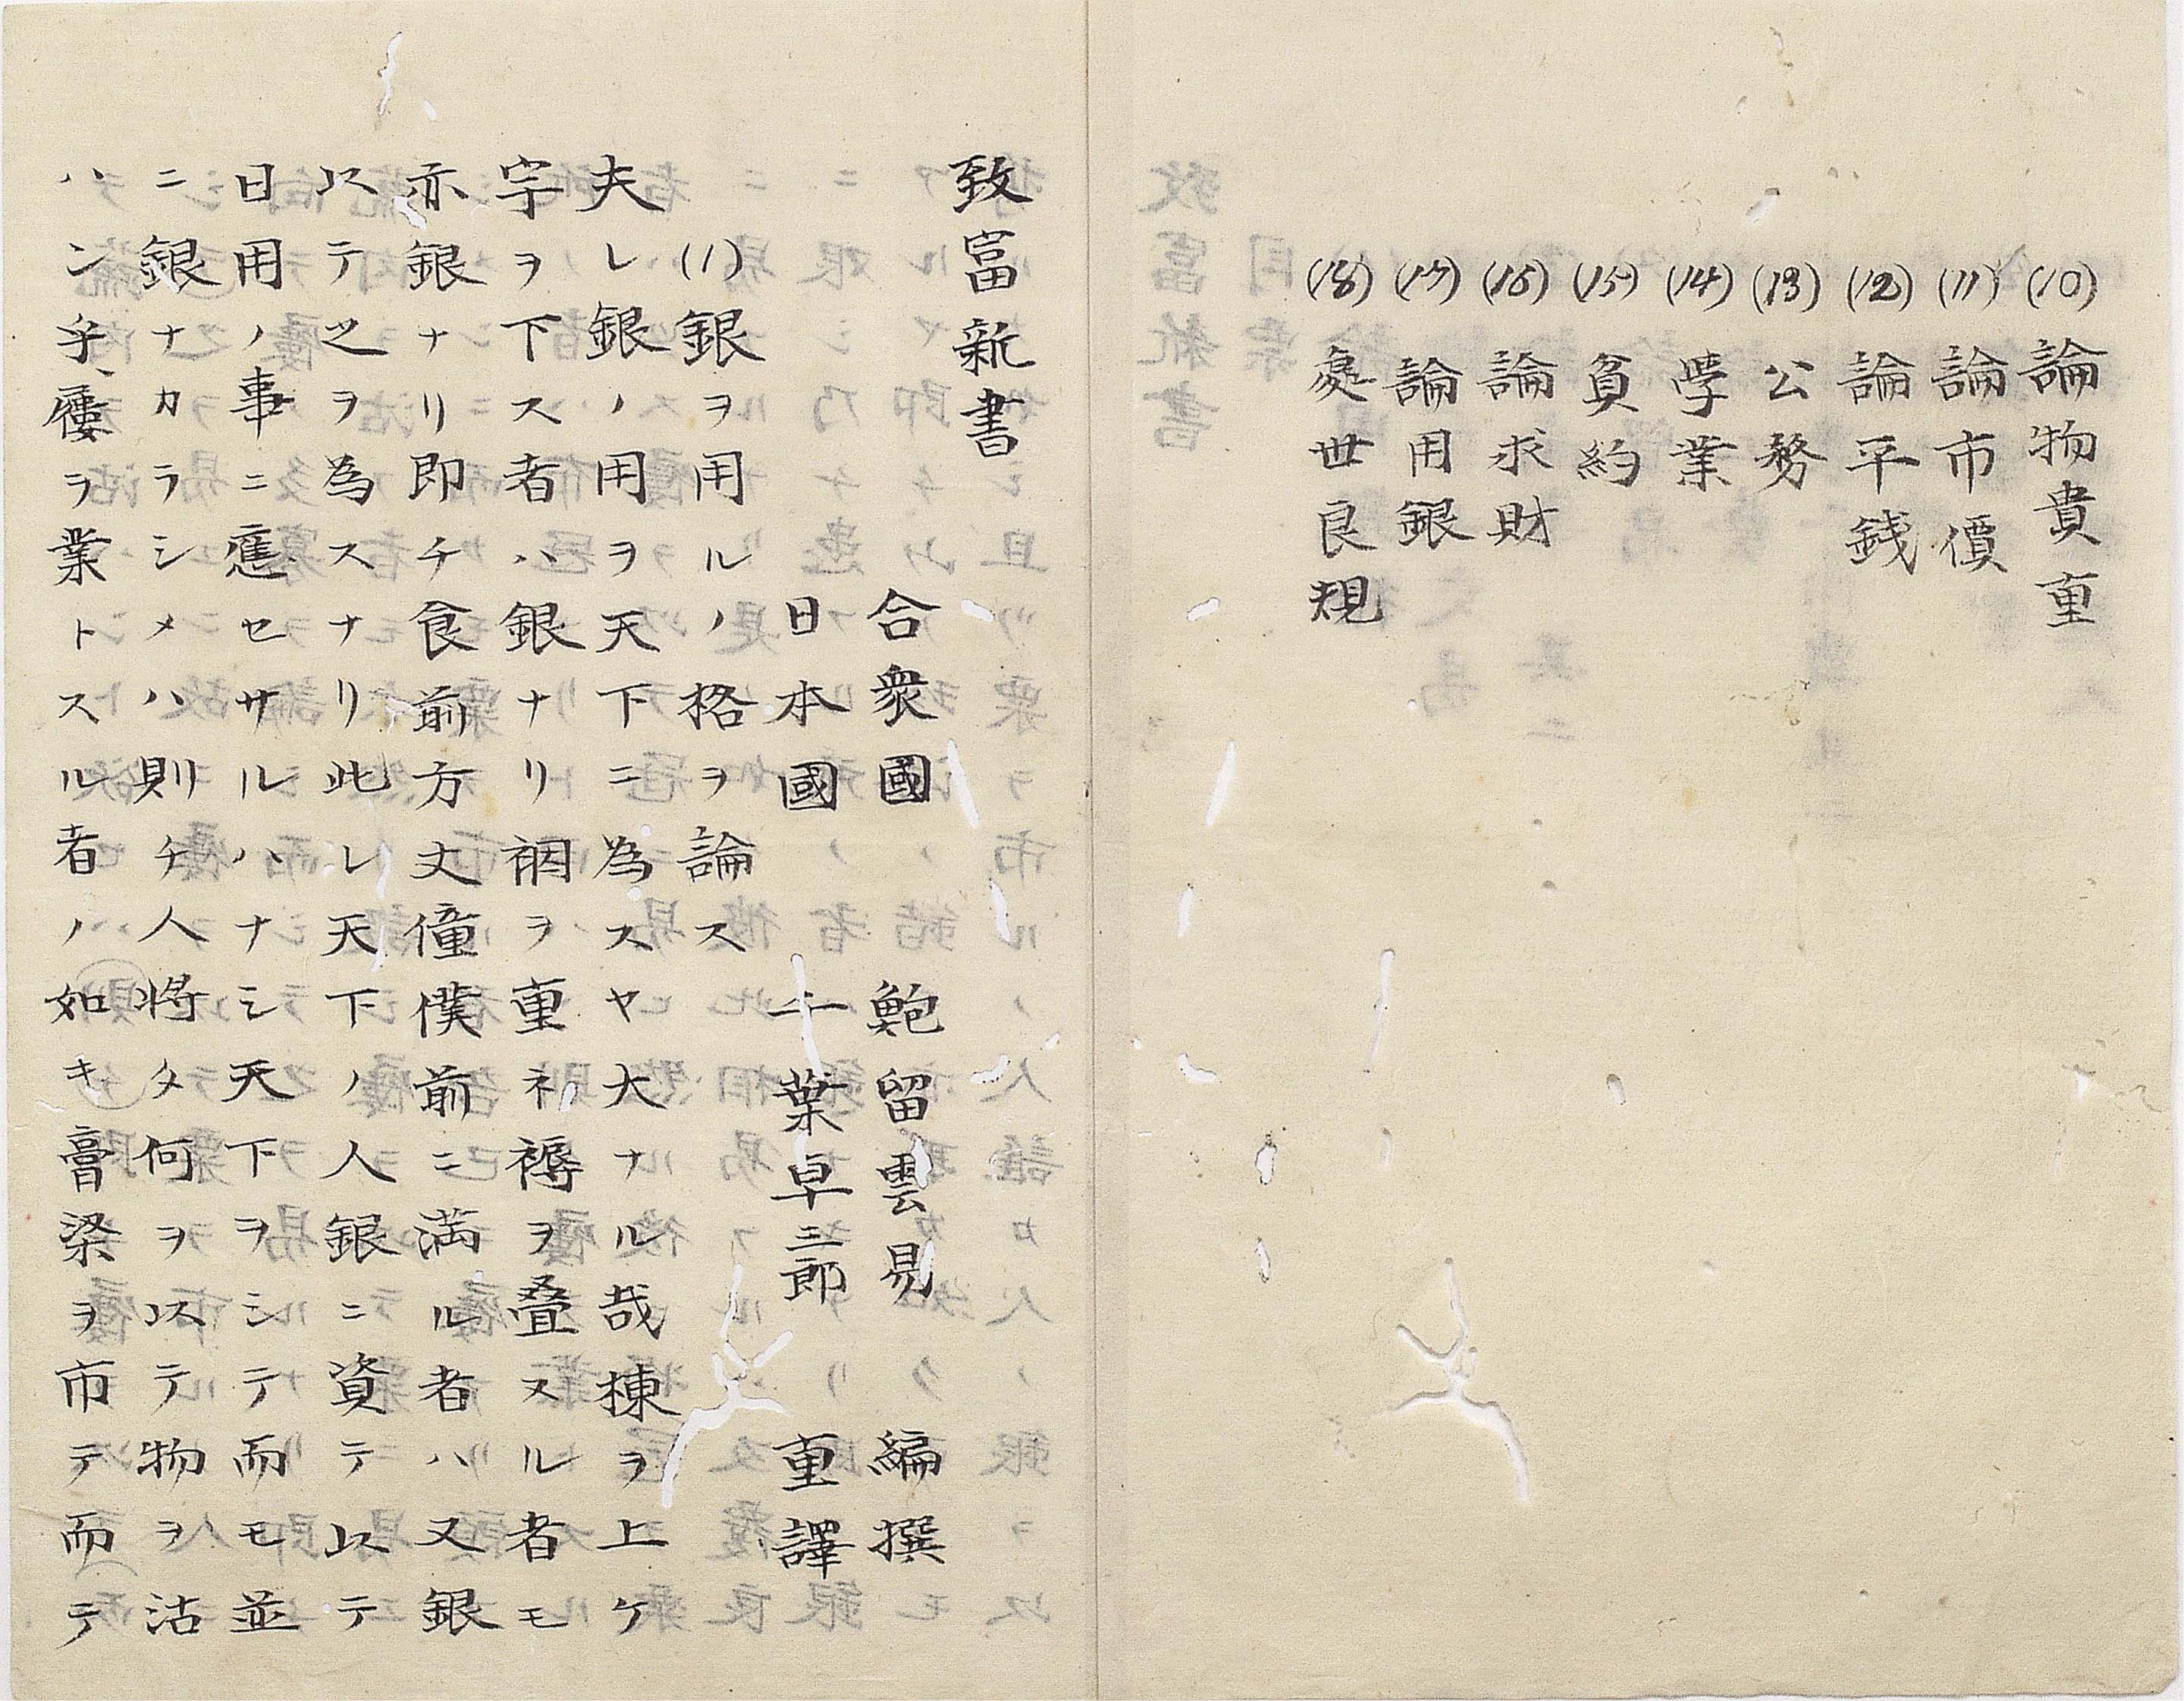 (10) 論物貴重
(11) 論市價
(12) 論平銭
(13) 公務
(14) 學業
(15) 負約
(16) 論求財
(17) 論用銀
(18) 處世良規
致富新書
合衆國 鮑留雲易 編撰
日本國 千葉卓三郎 重譯
(1)銀ヲ用ルノ格ヲ論ス
夫レ銀ノ用ヲ天下ニ為スヤ大ナル哉棟ヲ上ケ
宇ヲ下ス者ハ銀ナリ裀ヲ重ネ褥ヲ叠ヌル者モ
亦銀ナリ即チ食前方丈僮僕前ニ満ル者ハ又銀
以テ之ヲ為スナリ此レ天下ノ人銀ニ資テ以テ
日用ノ事ニ應セサルハナシ天下ヲシテ而モ並
ニ銀ナカラシメハ則チ人将タ何ヲ以テ物ヲ沽
ハン乎、屨ヲ業トスル者ノ如キ膏梁ヲ市テ而テ